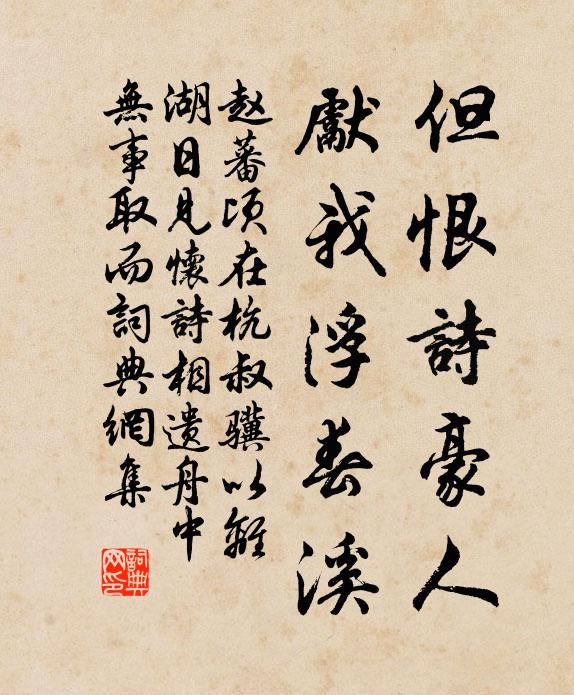 但恨詩豪人
獻我浮春溪
赵蕃頃在杭叔骥以離
湖日見懷詩相遺舟中
無事取而詞典網集
詞典网印